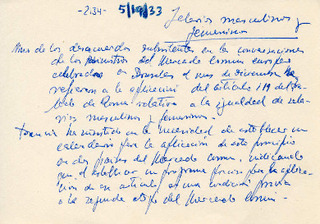 -234- 5/19/33
Salarios masculinos y
femeninos
Uno de los desacuerdos subsistentes en la conversaciones
de los ministros del Mercado Comun europeo
celebradas en Bruselas el mes de diciembre
refieren a la aplicación del artículo 119 del
de Roma relativo a la igualdad de
masculinos y femeninos.
Francia ha insistido en la necesidad de establecer un
calendario para la aplicación de este principio
en los países del Mercado Comun, indicando
que el establecer un programa preciso para la
de ese artículo es una condición previa
a la segunda etapa del Mercado Comun.